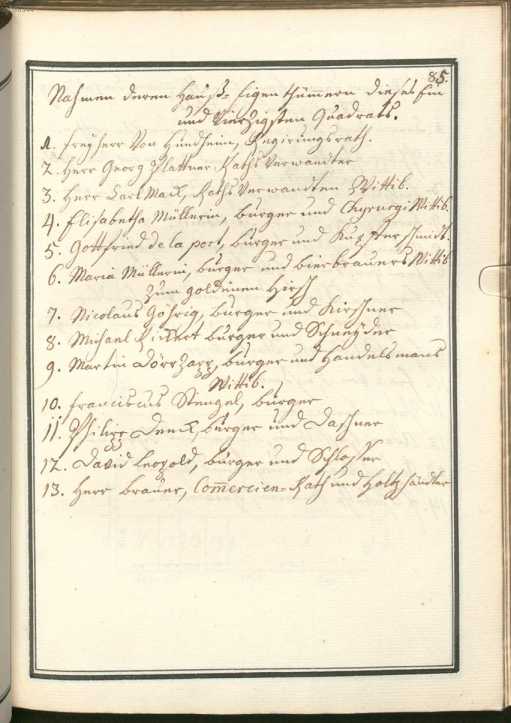 85.
Nahmen deren Hauß-Eigenthümern dieses Ein
und Vierzigsten Quadrats.
1. Freyherr Von Hundheim, Regirungsrath.
2. Herr Georg Glattner Raths Verwandter
3. Herr Carl Mack, Raths Verwandten Wittib.
4. Elisabetha Müllerin, burger und Chyrurgi Wittib.
5. Gottfried de la port, burger und Kupferschmidt.
6. Maria Müllerin, burger und bierbrauers Wittib
zum goldenen Hirsch
7. Nicolaus Göhrig, burger und Kirschner
8. Michael Pickert burger und Schneyder
9. Martin Dörrzapp, burger und Handelsmans
Wittib.
10. Franciscus Stengel, burger
11. Philipp Denck, burger und Daschner
12. David Leopold, burger und Schlosser
13. Herr Brauer, Commercien-Rath und Holtzhändler